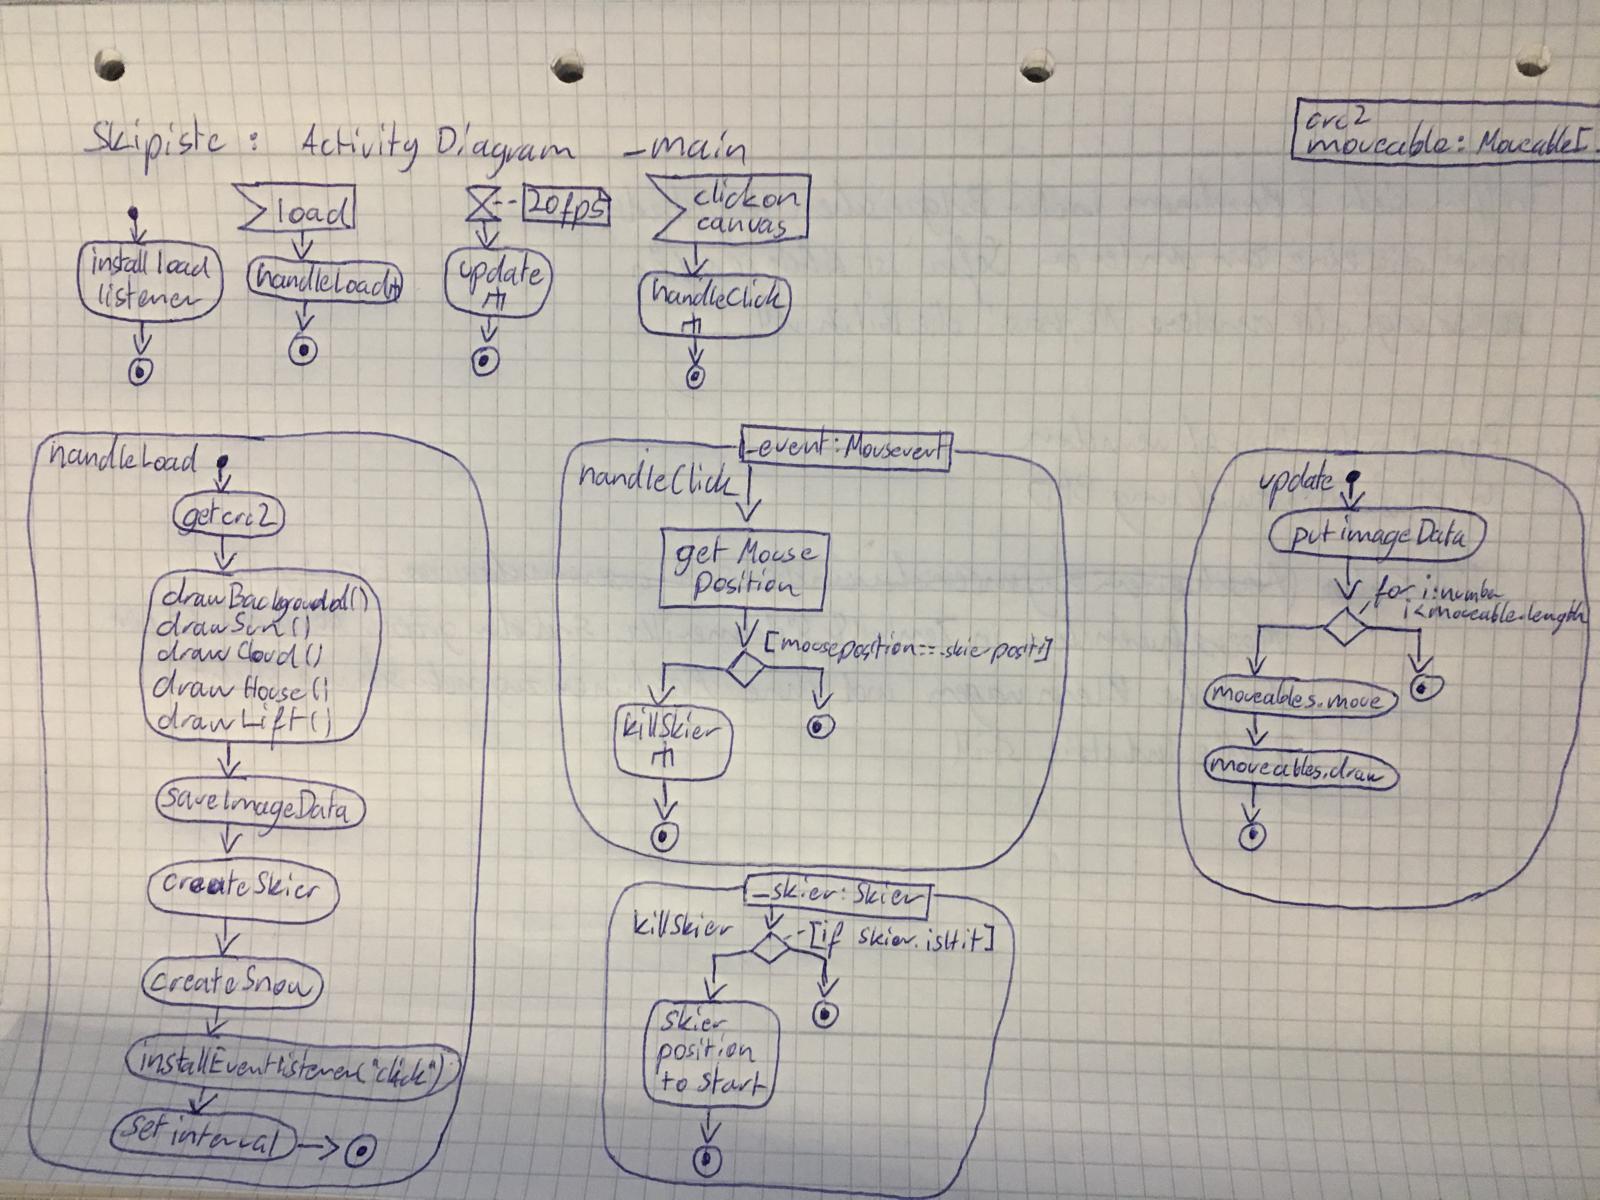 Skipiste : Activity Diagram _main
crc2
moveable: Moveable[
load
20fps
click on
canvas
install load
listener
handleLoad
update
handleClick
handleLoad
get crc2
drawBackground()
drawSun()
drawCloud()
drawHouse()
drawLift()
saveImageData
createSkier
createSnow
installEventlistener("click")
setinterval
_event: Mousevent
handleClick
get Mouse
position
[mouseposition==skierposit]
killSkier
_skier: Skier
killSkier
[if skier.isHit]
Skier
position
to start
update
put imageData
for i:number
i<moveable.length
moveables.move
moveables.draw